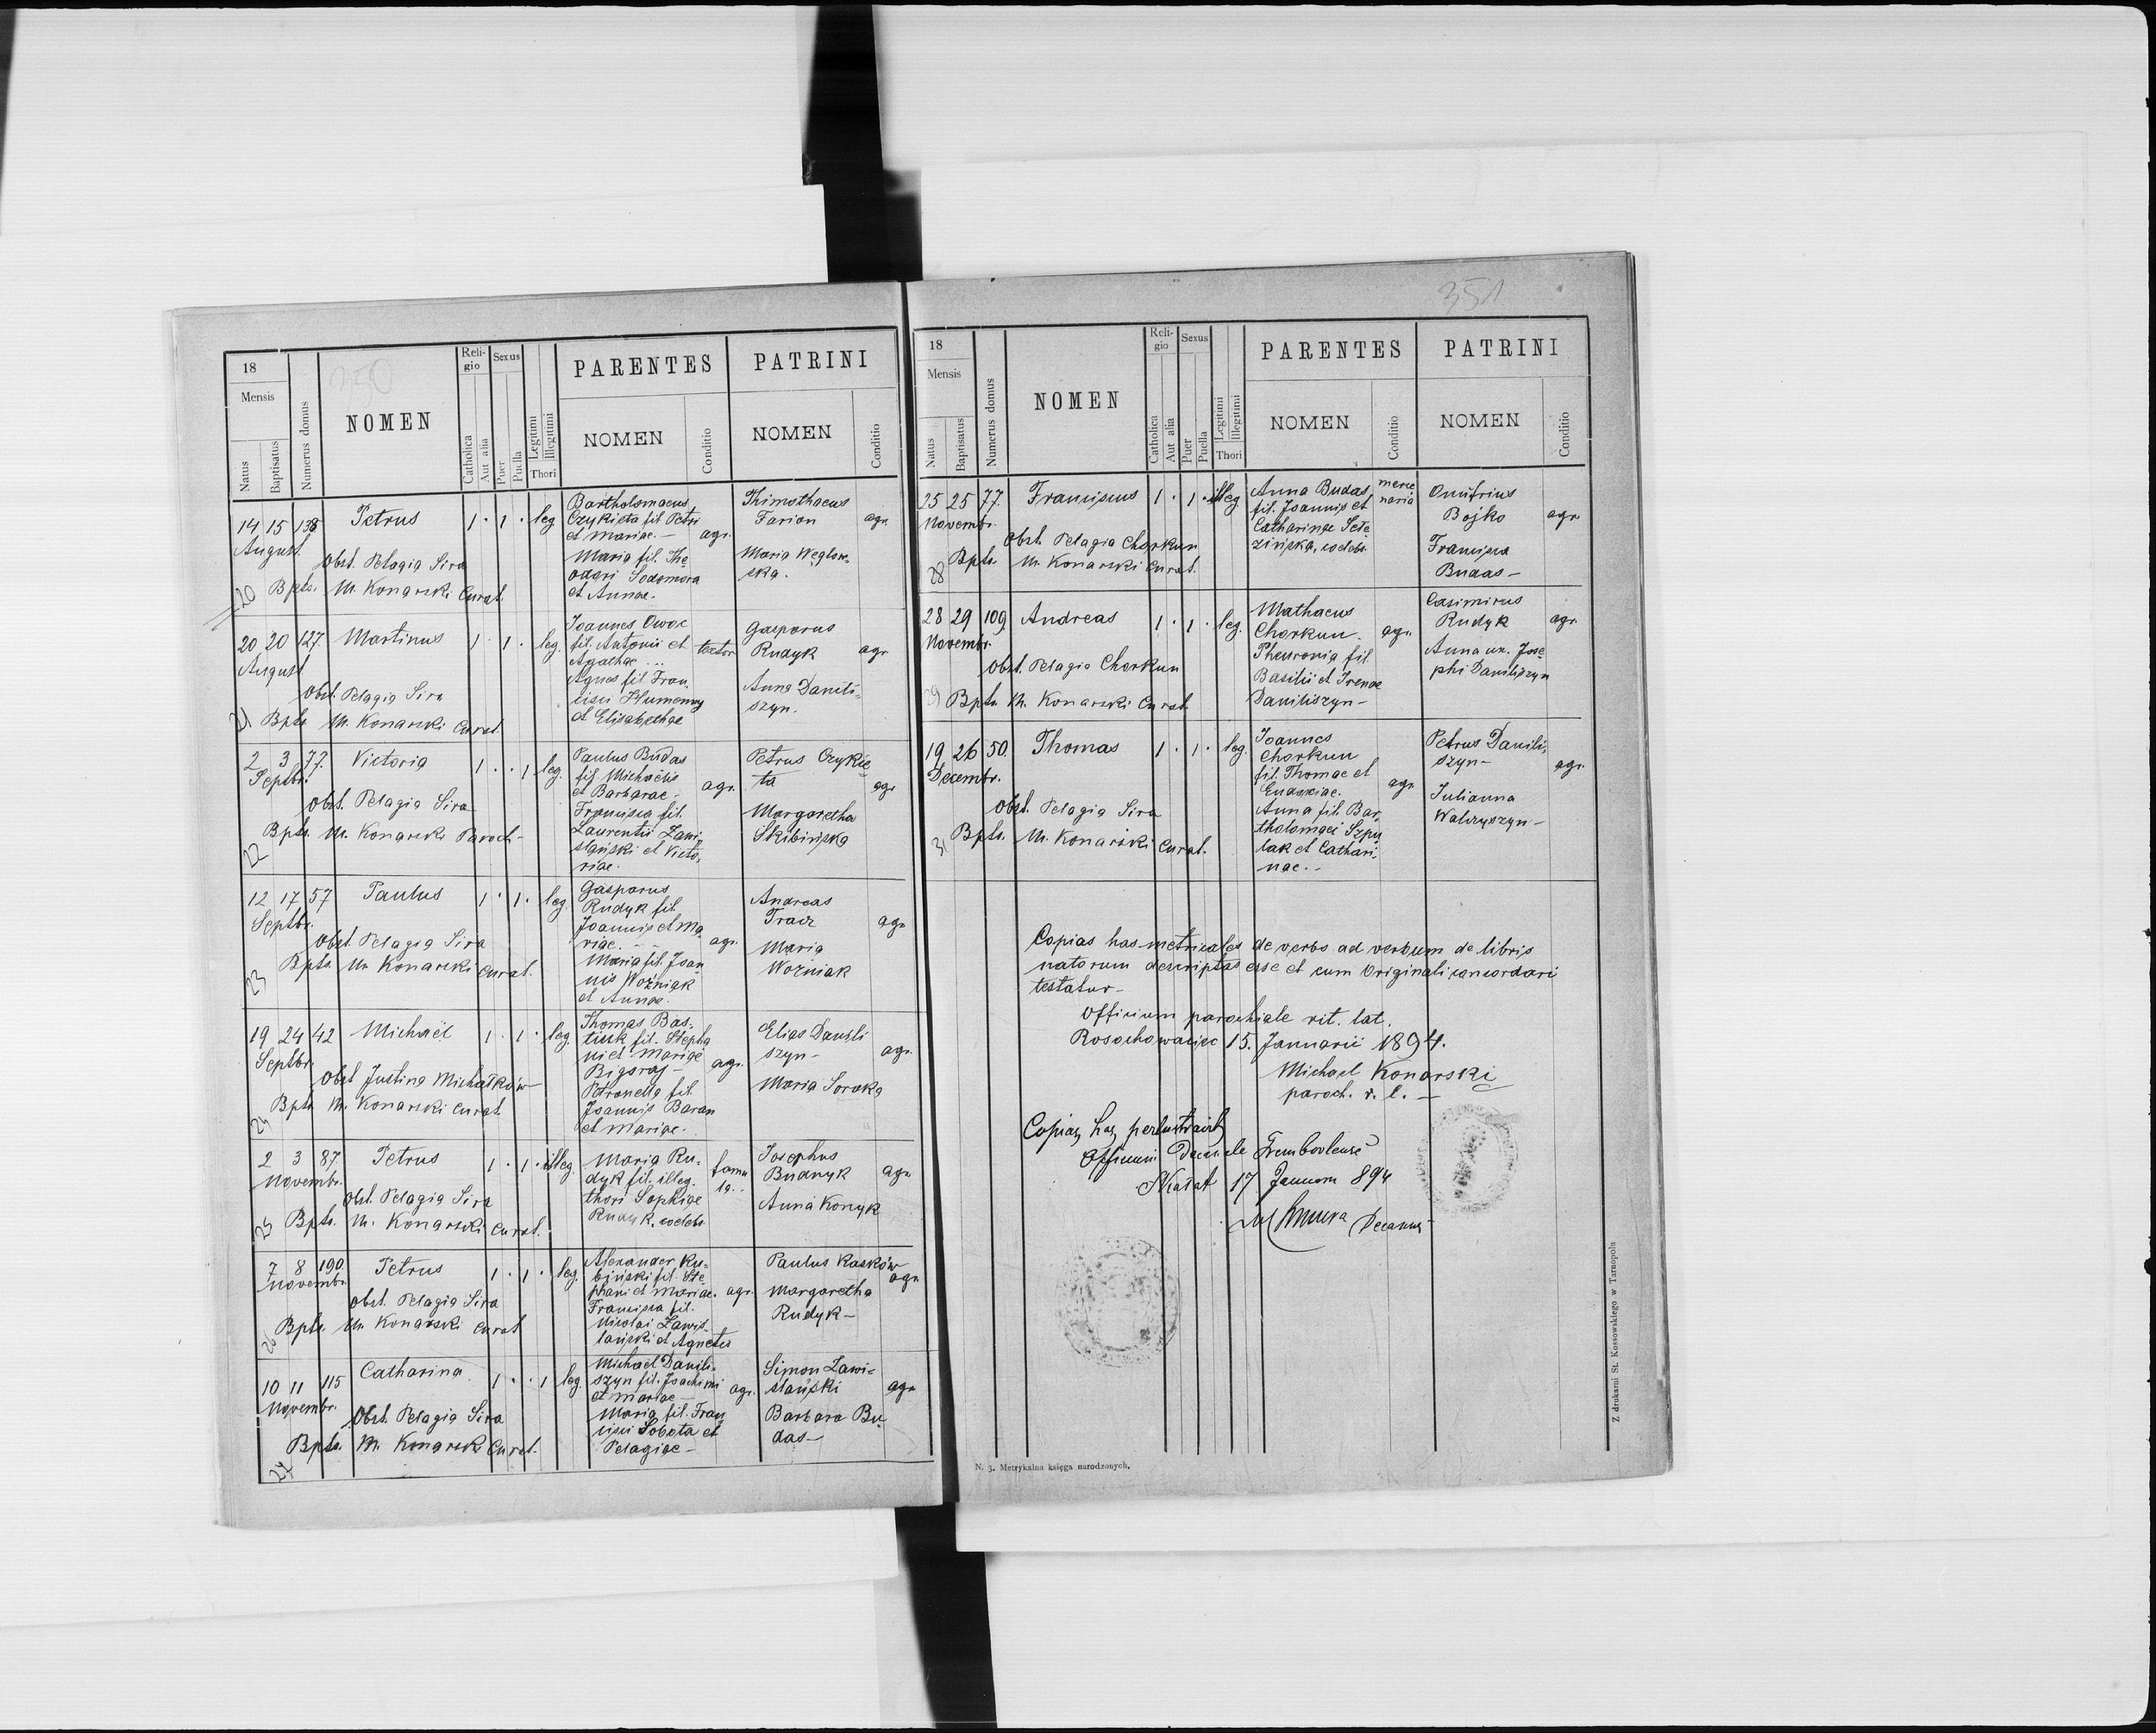 350
18
Mensis
Natus
Baptisatus
Numerus domus
NOMEN
Religio
Catholica
Aut alia
Sexus
Puer
Puella
Legitimi
Illegitimi
Thori
PARENTES
NOMEN
Conditio
PATRINI
NOMEN
Conditio
14 15 138 Petrus 1 · 1 · leg.
August
Obst. Pelagia Sira
20 Bpts. M. Konarski Curat.
Bartholomaeus
Czykieta fil. Petri
et Mariae. — agr.
Maria fil. The
odori Sodomora
et Annae.
Thimothaeus
Farion agr.
Maria Węglow-
ska.
20 20 127. Martinus 1 · 1 · leg.
August
Obst. Pelagia Sira
21 Bpts. M. Konarski Curat.
Joannes Owoc
fil. Antonii et textor
Agathae ...
Agnes fil. Fran
cisci Humenny
et Elisabethae
Gasparus
Rudyk agr.
Anna Danili-
szyn.
2 3 77. Victoria 1 · · 1 leg.
Septbr.
Obst. Pelagia Sira
22 Bpts. M. Konarski Paroch-
Paulus Budas
fil. Michaëlis
et Barbarae - agr.
Francisca fil.
Laurentii Zawi-
slański et Victo-
riae.
Petrus Czykie
ta agr.
Margaretha
Skibińska
12 17 57 Paulus 1 · 1 · leg.
Septbr.
Obst. Pelagia Sira
23 Bpts. M. Konarski Curat.
Gasparus
Rudyk fil.
Joannis et Ma
riae. agr.
Maria fil. Joan
nis Woźniak
et Annae.
Andreas
Tracz agr.
Maria
Woźniak
19 24 42 Michaël 1 · 1 · leg.
Septbr.
Obst Justina Michałków
24 Bpts. M. Konarski Curat
Thomas Bas-
tiuk fil. Stepha
ni et Mariae
Bigoraj - agr.
Petronella fil.
Joannis Baran
et Mariae.
Elias Danili
szyn - agr.
Maria Soroka
2 3 87. Petrus 1 · 1 · illeg.
Novembr.
Obst. Pelagia Sira
25 Bpts. M. Konarski Curat.
Maria Ru-
dyk fil. illeg. famu
thori Sophiae la..
Rudyk, coelebs
Josephus
Budnyk agr.
Anna Konyk
7 8 190. Petrus 1 · 1 · leg.
Novembr.
Obst. Pelagia Sira
26 Bpts. M. Konarski Curat
Alexander Ru-
biński fil. Ste
phani et Mariae. agr.
Francisca fil.
Nicolai Zawis-
lański et Agnetis
Paulus Kasków
agr.
Margaretha
Rudyk -
10 11 115 Catharina 1 · · 1 leg.
Novembr.
Obst. Pelagia Sira
27 Bpts. M. Konarski Curat.
Michael Danili-
szyn fil. Joachimi
et Mariae - agr.
Maria fil. Fran
cisci Sobota et
Pelagiae -
Simon Zawi-
slański agr.
Barbara Bu
das -
351
18
Mensis
Natus
Baptisatus
Numerus domus
NOMEN
Religio
Catholica
Aut alia
Sexus
Puer
Puella
Legitimi
Illegitimi
Thori
PARENTES
NOMEN
Conditio
PATRINI
NOMEN
Conditio
25 25 77. Franciscus 1 · 1 · illeg
Novembr.
Obst. Pelagia Charkun
28 Bpts. M. Konarski Curat.
Anna Budas, merce
fil. Joannis et naria
Catharinae
coelebs.
Onufrius
Bojko agr.
Francisca
Budas -
28 29 109. Andreas 1 · 1 · leg.
Novembr.
Obst. Pelagia Charkun
29 Bpts. M. Konarski Curat.
Mathaeus
Charkun. agr.
Pheuronia fil.
Basilii et Irenae
Daniliszyn -
Casimirus
Rudyk agr.
Anna ux. Jose
phi Daniliszyn
19 26 50. Thomas 1 · 1 · leg.
Decembr.
Obst. Pelagia Sira
31 Bpts. M. Konarski Curat.
Joannes
Charkun
fil. Thomae et
Eudoxiae. agr.
Anna fil. Bar-
tholomaei Szpu
lak et Cathari-
nae. -
Petrus Danili-
szyn - agr.
Julianna
Walczyszyn -
Copias has metricales de verbo ad verbum de libris
natorum descriptas esse et cum originali concordari
testatur -
Officium parochiale rit. lat.
Rosochowaciec 15. Januarii 1894.
Michael Konarski
paroch. r. l. —
Copias has perlustravit
Officium Decanale Trembowlense
Skałat 17 Januar 894
Decanus
N. 3. Metrykalna księga narodzonych.
Z drukarni St. Kossowskiego w Tarnopolu